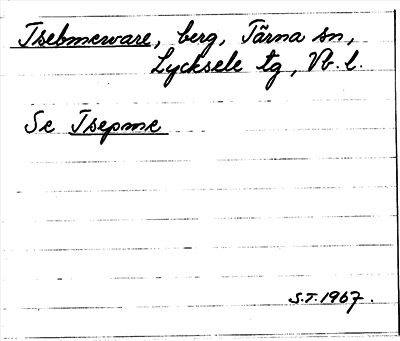 Tsebmeware, berg, Tärna sn,
Lycksele tg, Vb. l.
Se Tsepme
S.T. 1967.